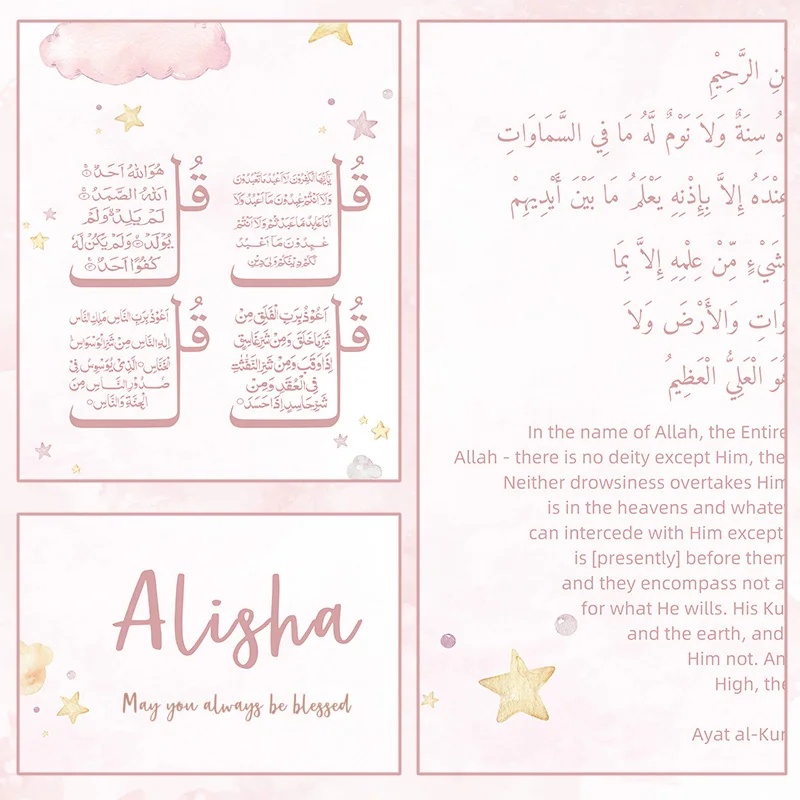 قُلْ
يٰاَيُّهَا الْكٰفِرُوْنَ لَا اَعْبُدُ مَا تَعْبُدُوْنَ
وَلَا اَنْتُمْ عٰبِدُوْنَ مَا اَعْبُدُ وَلَا
اَنَا عَابِدٌ مَّا عَبَدْتُّمْ وَلَا اَنْتُمْ
عٰبِدُوْنَ مَا اَعْبُدُ
لَكُمْ دِيْنُكُمْ وَلِيَ دِيْنِ
قُلْ
هُوَ اللهُ اَحَدٌ
اَللهُ الصَّمَدُ
لَمْ يَلِدْ وَلَمْ
يُوْلَدْ وَلَمْ يَكُنْ لَّهٗ
كُفُوًا اَحَدٌ
قُلْ
اَعُوْذُ بِرَبِّ الْفَلَقِ مِنْ
شَرِّ مَا خَلَقَ وَمِنْ شَرِّ غَاسِقٍ
اِذَا وَقَبَ وَمِنْ شَرِّ النَّفّٰثٰتِ
فِي الْعُقَدِ وَمِنْ
شَرِّ حَاسِدٍ اِذَا حَسَدَ
قُلْ
اَعُوْذُ بِرَبِّ النَّاسِ مَلِكِ النَّاسِ
اِلٰهِ النَّاسِ مِنْ شَرِّ الْوَسْوَاسِ
الْخَنَّاسِ الَّذِيْ يُوَسْوِسُ فِيْ
صُدُوْرِ النَّاسِ مِنَ
الْجِنَّةِ وَالنَّاسِ
Alisha
May you always be blessed
الرَّحِيْمِ
سِنَةٌ وَلاَ نَوْمٌ لَّهُ مَا فِي السَّمَاوَاتِ
عِنْدَهُ إِلاَّ بِإِذْنِهِ يَعْلَمُ مَا بَيْنَ أَيْدِيهِمْ
بِشَيْءٍ مِّنْ عِلْمِهِ إِلاَّ بِمَا
وَالأَرْضَ وَلاَ
هُوَ الْعَلِيُّ الْعَظِيمُ
In the name of Allah, the Entire
Allah - there is no deity except Him, the
Neither drowsiness overtakes Him
is in the heavens and whate
can intercede with Him except
is [presently] before them
and they encompass not a
for what He wills. His Ku
and the earth, and
Him not. An
High, the
Ayat al-Kur